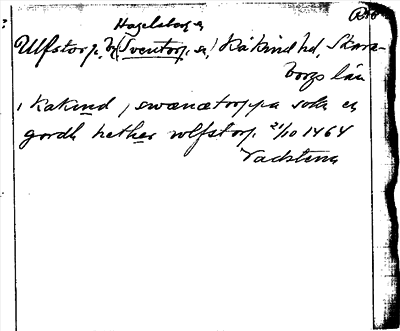 Hagelstorp
Ulfstorp, (Sventorp, Kåkind hd, Skara-
borgs län
i Kakind, swænætorppa sokn en
gordh hether wlfstorp 21/10 1464
Vadstena